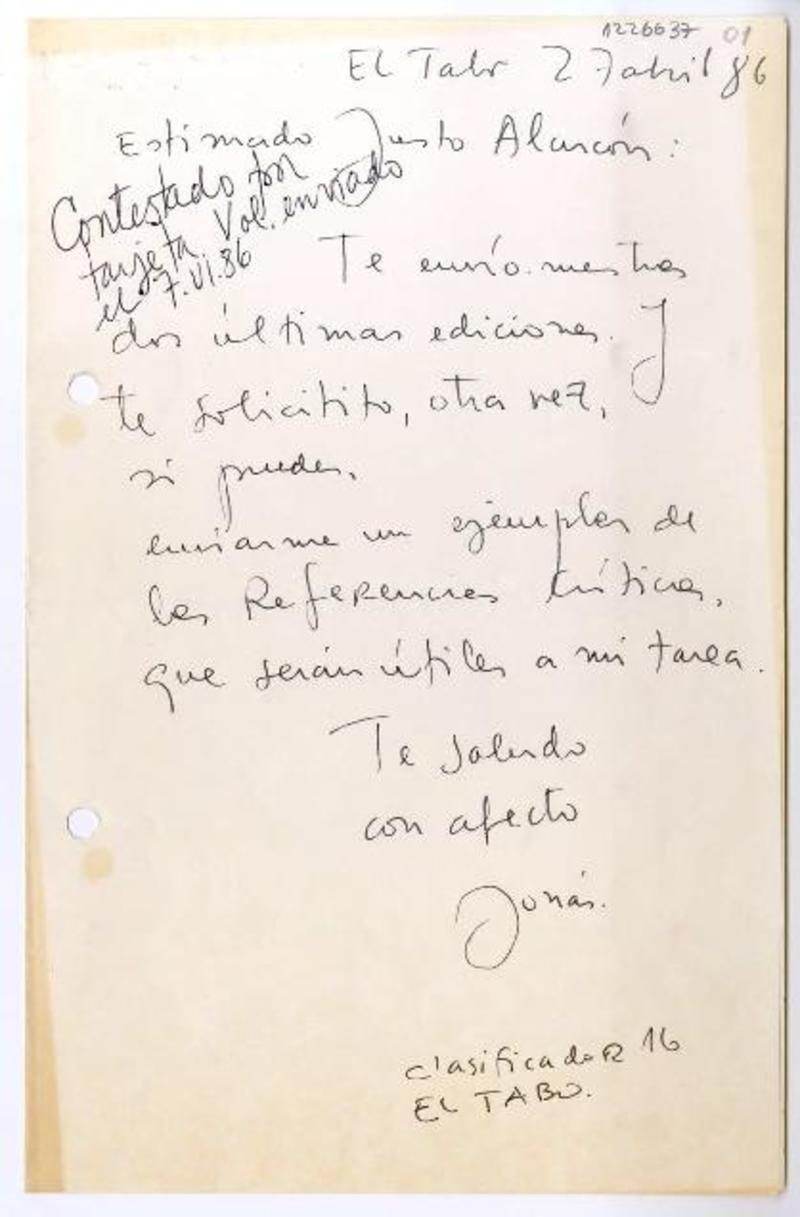 1226637 01
El Tabo 27 abril 86
Estimado Justo Alarcón:
Contestado por
tarjeta. Vol. enviado
el 7.VI.86
Te envío nuestras
dos últimas ediciones. Y
te solicitito, otra vez,
si puedes,
enviarme un ejemplar de
las Referencias Críticas,
que serán útiles a mi tarea.
Te saludo
con afecto
Jonás.
Clasificador 16
EL TABO.